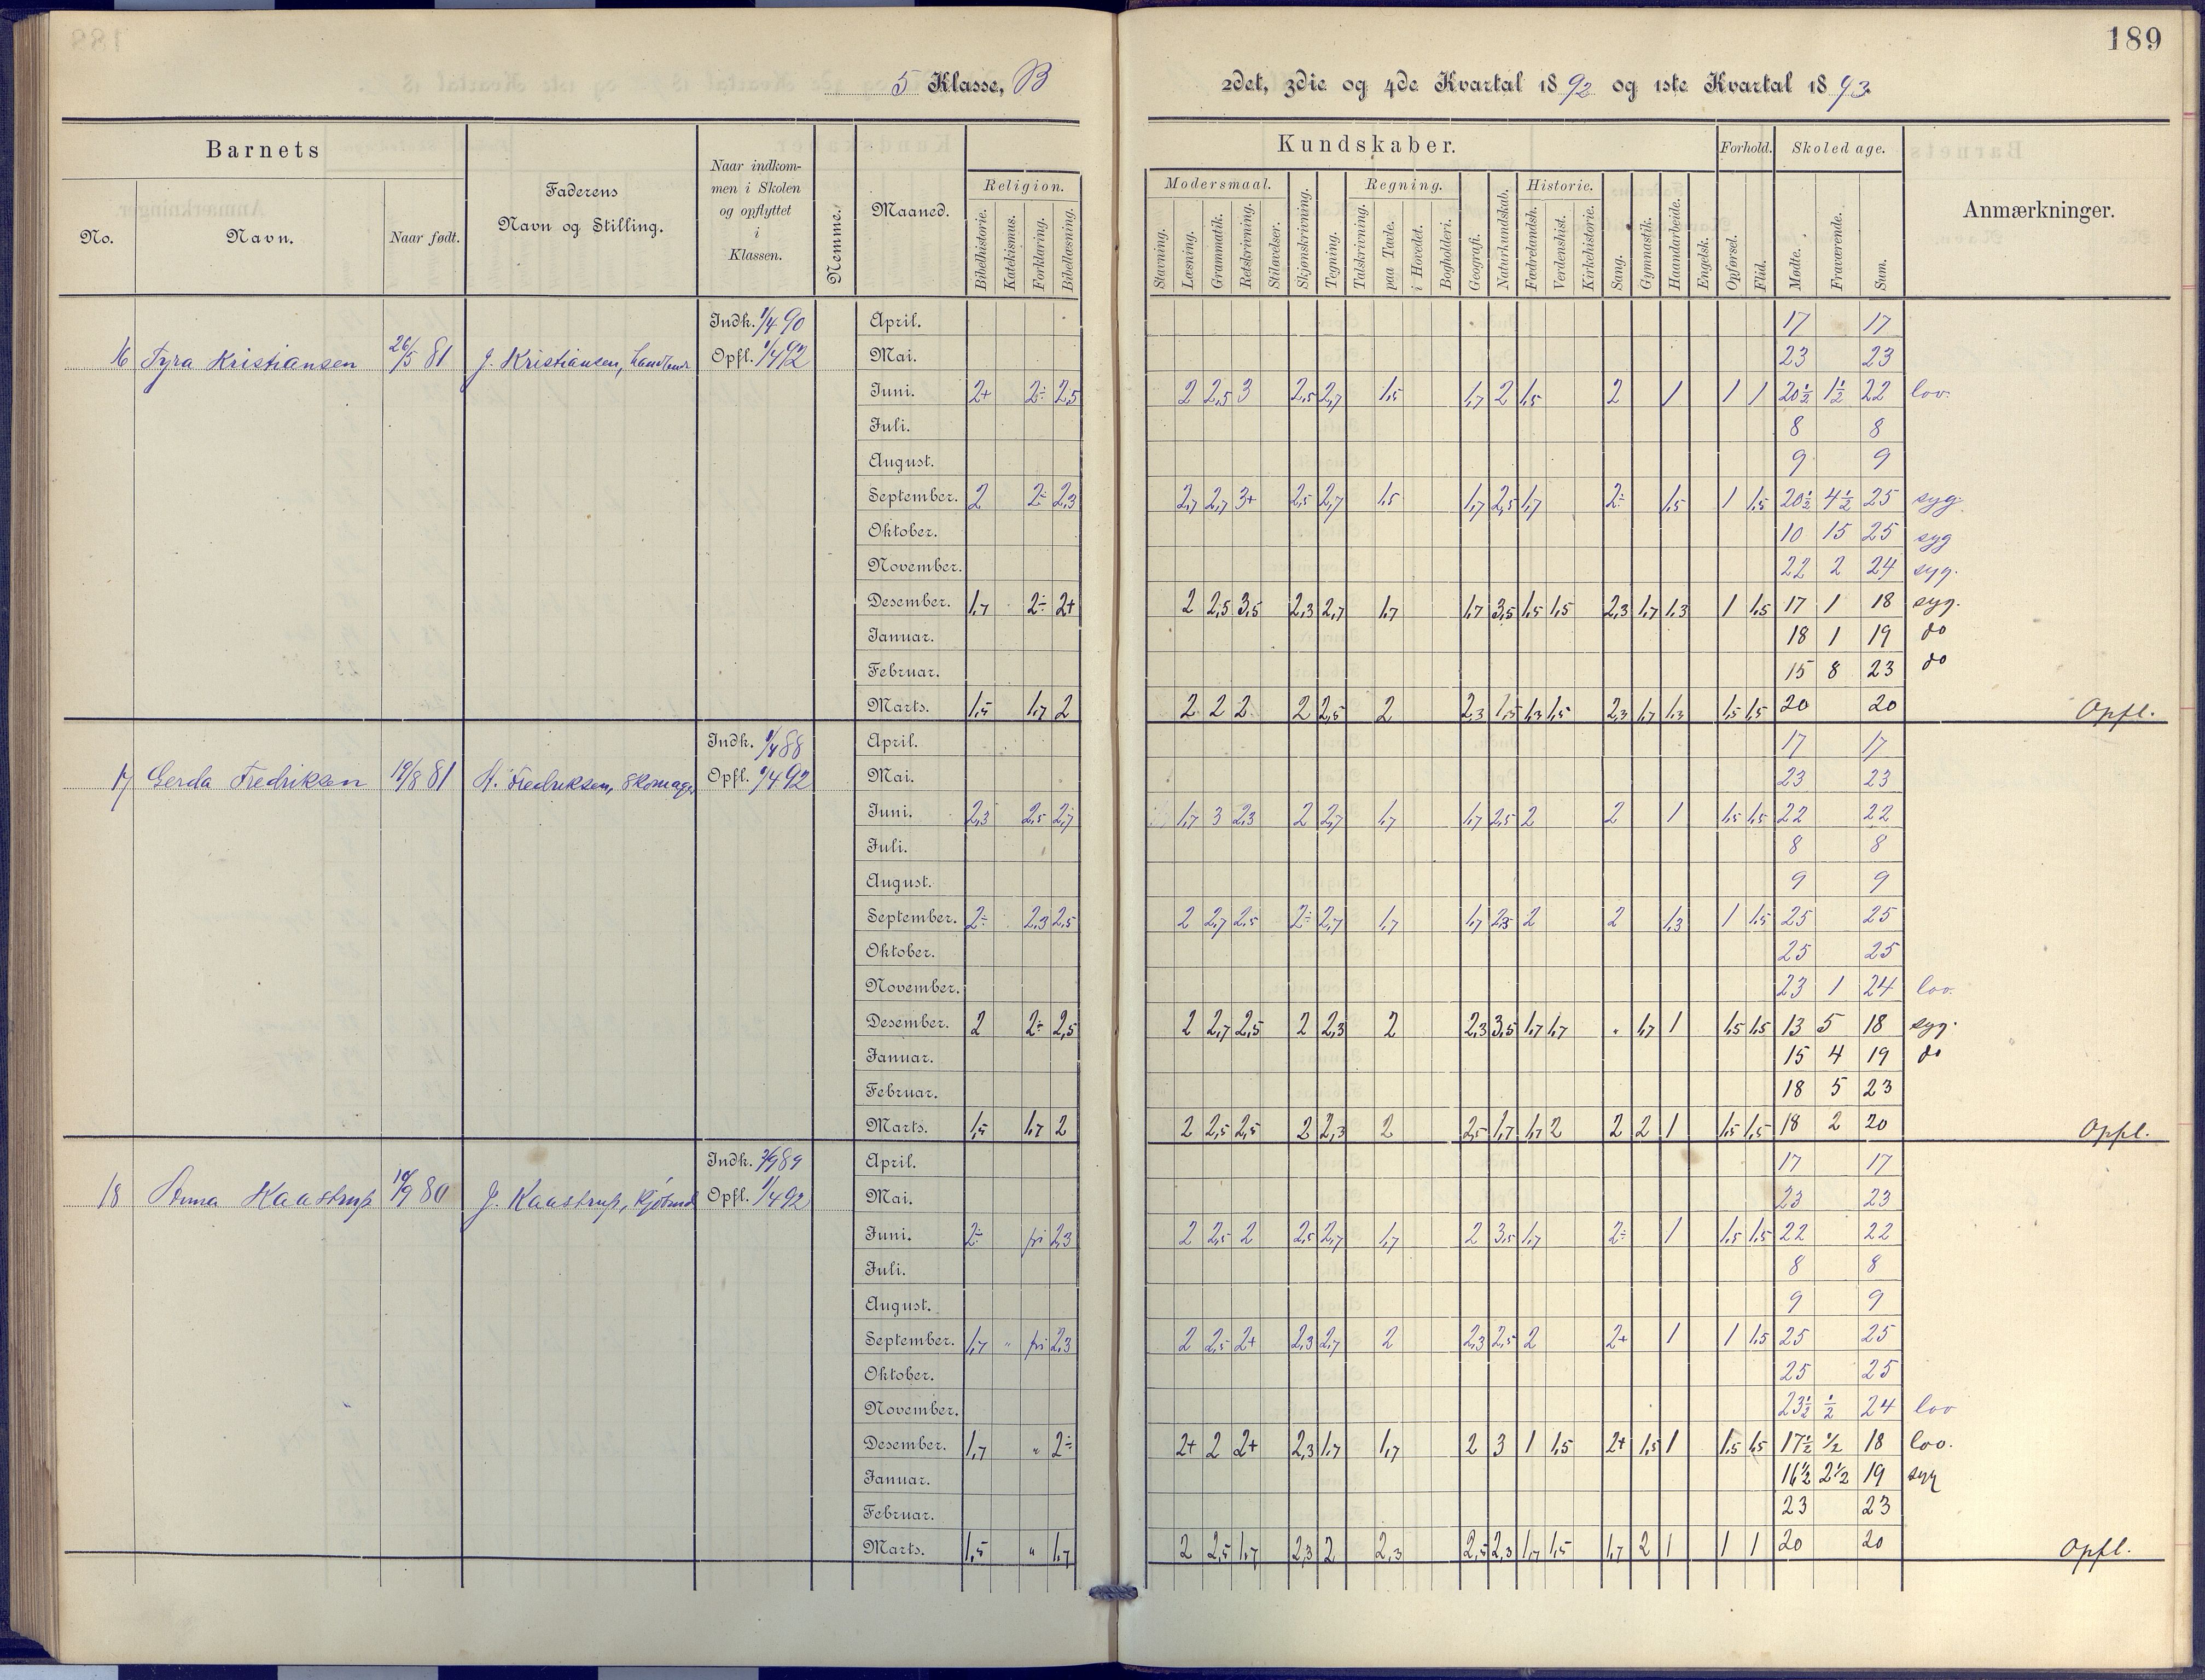 189
5 Klasse, B
2det, 3die og 4de Kvartal 1892 og 1ste Kvartal 1893.
Barnets
Faderens Navn og Stilling.
Naar indkommen i Skolen og opflyttet i Klassen.
Nemme.
Maaned.
Religion.
Kundskaber.
Forhold.
Skoledage.
Anmærkninger.
Modersmaal. Regning. Historie.
No. Navn. Naar født.
Bibelhistorie. Katekismus. Forklaring. Bibellæsning.
Stavning. Læsning. Grammatik. Retskrivning. Stiløvelser. Skjønskrivning. Tegning. Talskrivning. paa Tavle. i Hovedet. Bogholderi. Geografi. Naturkundskab. Fædrelandsh. Verdenshist. Kirkehistorie. Sang. Gymnastik. Haandarbeide. Engelsk. Opførsel. Flid. Mødte. Fraværende. Sum.
16 Tyra Kristiansen 26/5 81 J. Kristiansen, Indk. 1/4 90 Opfl. 1/4 92
April. 17 17
Mai. 23 23
Juni. 2+ 2÷ 2,5 2 2,5 3 2,5 2,7 1,5 1,7 2 1,5 2 1 1 1 20½ 1½ 22 lov.
Juli. 8 8
August. 9 9
September. 2 2÷ 2,3 2,7 2,7 3+ 2,5 2,7 1,5 1,7 2,5 1,7 2÷ 1,5 1 1,5 20½ 4½ 25 syg.
Oktober. 10 15 25 syg
November. 22 2 24 syg.
Desember. 1,7 2÷ 2+ 2 2,5 3,5 2,3 2,7 1,7 1,7 3,5 1,5 1,5 2,3 1,7 1,3 1 1,5 17 1 18 syg.
Januar. 18 1 19 do
Februar. 15 8 23 do
Marts. 1,5 1,7 2 2 2 2 2 2,5 2 2,3 1,5 1,3 1,5 2,3 1,7 1,3 1,5 1,5 20 20 Opfl.
17 Gerda Fredriksen 19/8 81 H. Fredriksen, Skomager Indk. 1/4 88 Opfl. 1/4 92
April. 17 17
Mai. 23 23
Juni. 2,3 2,5 2,7 1,7 3 2,3 2 2,7 1,7 1,7 2,5 2 2 1 1,5 1,5 22 22
Juli. 8 8
August. 9 9
September. 2÷ 2,3 2,5 2 2,7 2,5 2÷ 2,7 1,7 1,7 2,3 2 2 1,3 1 1,5 25 25
Oktober. 25 25
November. 23 1 24 lov.
Desember. 2 2÷ 2,5 2 2,7 2,5 2 2,3 2 2,3 3,5 1,7 1,7 " 1,7 1 1,5 1,5 13 5 18 syg.
Januar. 15 4 19 do
Februar. 18 5 23
Marts. 1,5 1,7 2 2 2,5 2,5 2 2,3 2 2,5 1,7 1,7 2 2 2 1 1,5 1,5 18 2 20 Opfl.
18 Anna Kaastrup 19/9 80 J. Kaastrup, Kjøbmd Indk. 89 Opfl. 1/4 92
April. 17 17
Mai. 23 23
Juni. 2÷ fri 2,3 2 2,5 2 2,5 2,7 1,7 2 3,5 1,7 2÷ 1 1,5 1,5 22 22
Juli. 8 8
August. 9 9
September. 1,7 " fri 2,3 2 2,5 2+ 2,3 2,7 2 2,3 2,5 2 2+ 1 1 1,5 25 25
Oktober. 25 25
November. 23½ ½ 24 lov
Desember. 1,7 " 2÷ 2+ 2 2+ 2,3 1,7 1,7 2 3 1 1,5 2+ 1,5 1 1,5 1,5 17½ ½ 18 lov.
Januar. 16½ 2½ 19 syg
Februar. 23 23
Marts. 1,5 " 1,7 2 2,5 1,7 2,3 2 2,3 2,5 2,3 1,7 1,5 1,7 2 1 1 1 20 20 Opfl.